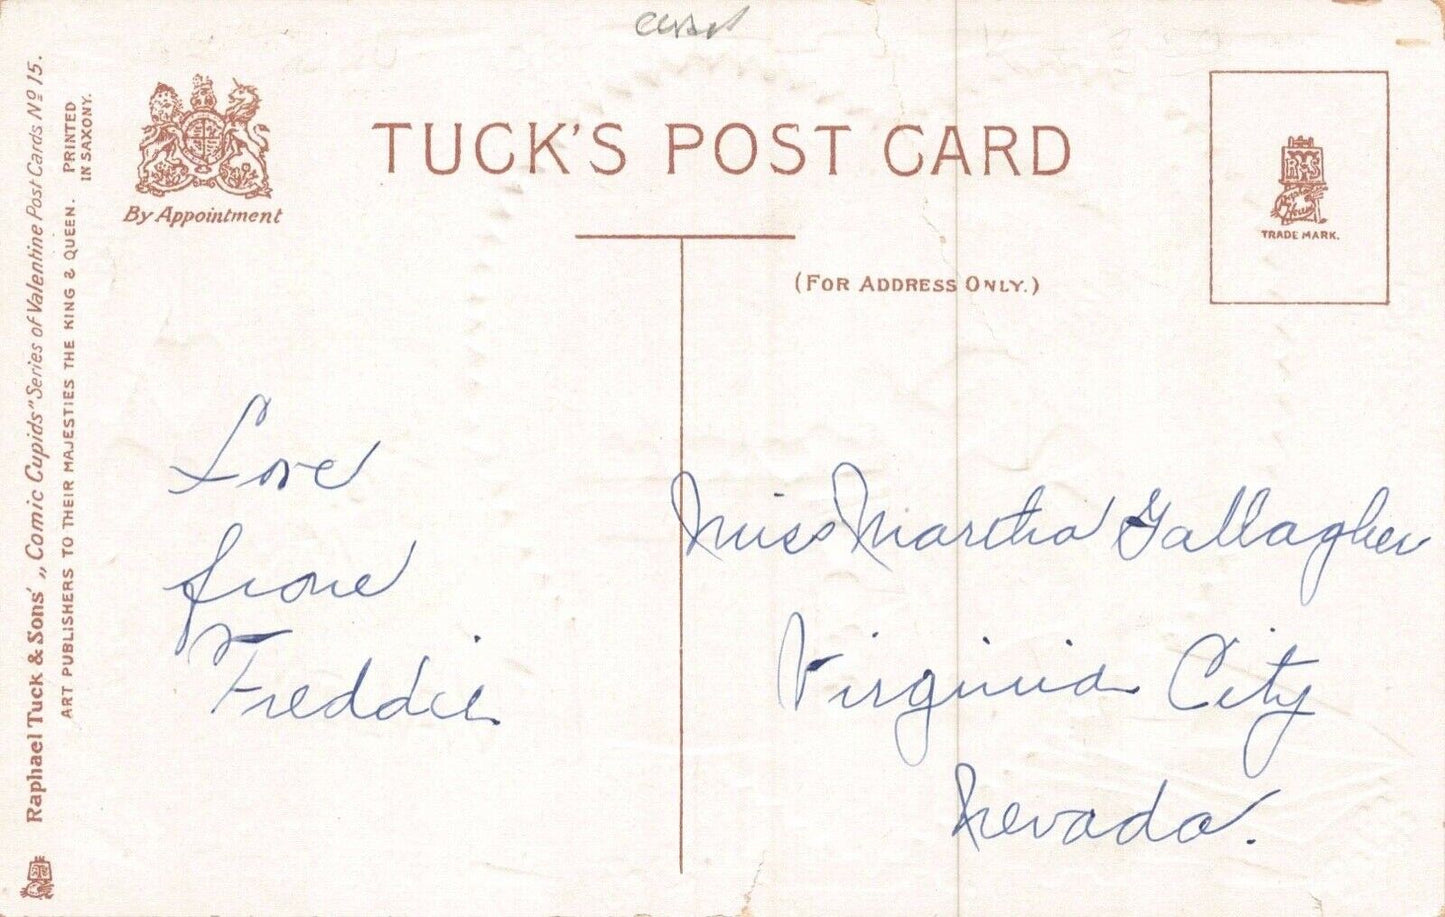 TUCK'S POST CARD
By Appointment
(FOR ADDRESS ONLY.)
TRADE MARK.
Raphael Tuck & Sons' „Comic Cupids" Series of Valentine Post Cards No 15.
ART PUBLISHERS TO THEIR MAJESTIES THE KING & QUEEN.
PRINTED
IN SAXONY.
Love
from
Freddie
Miss Martha Gallagher
Virginia City
Nevada.